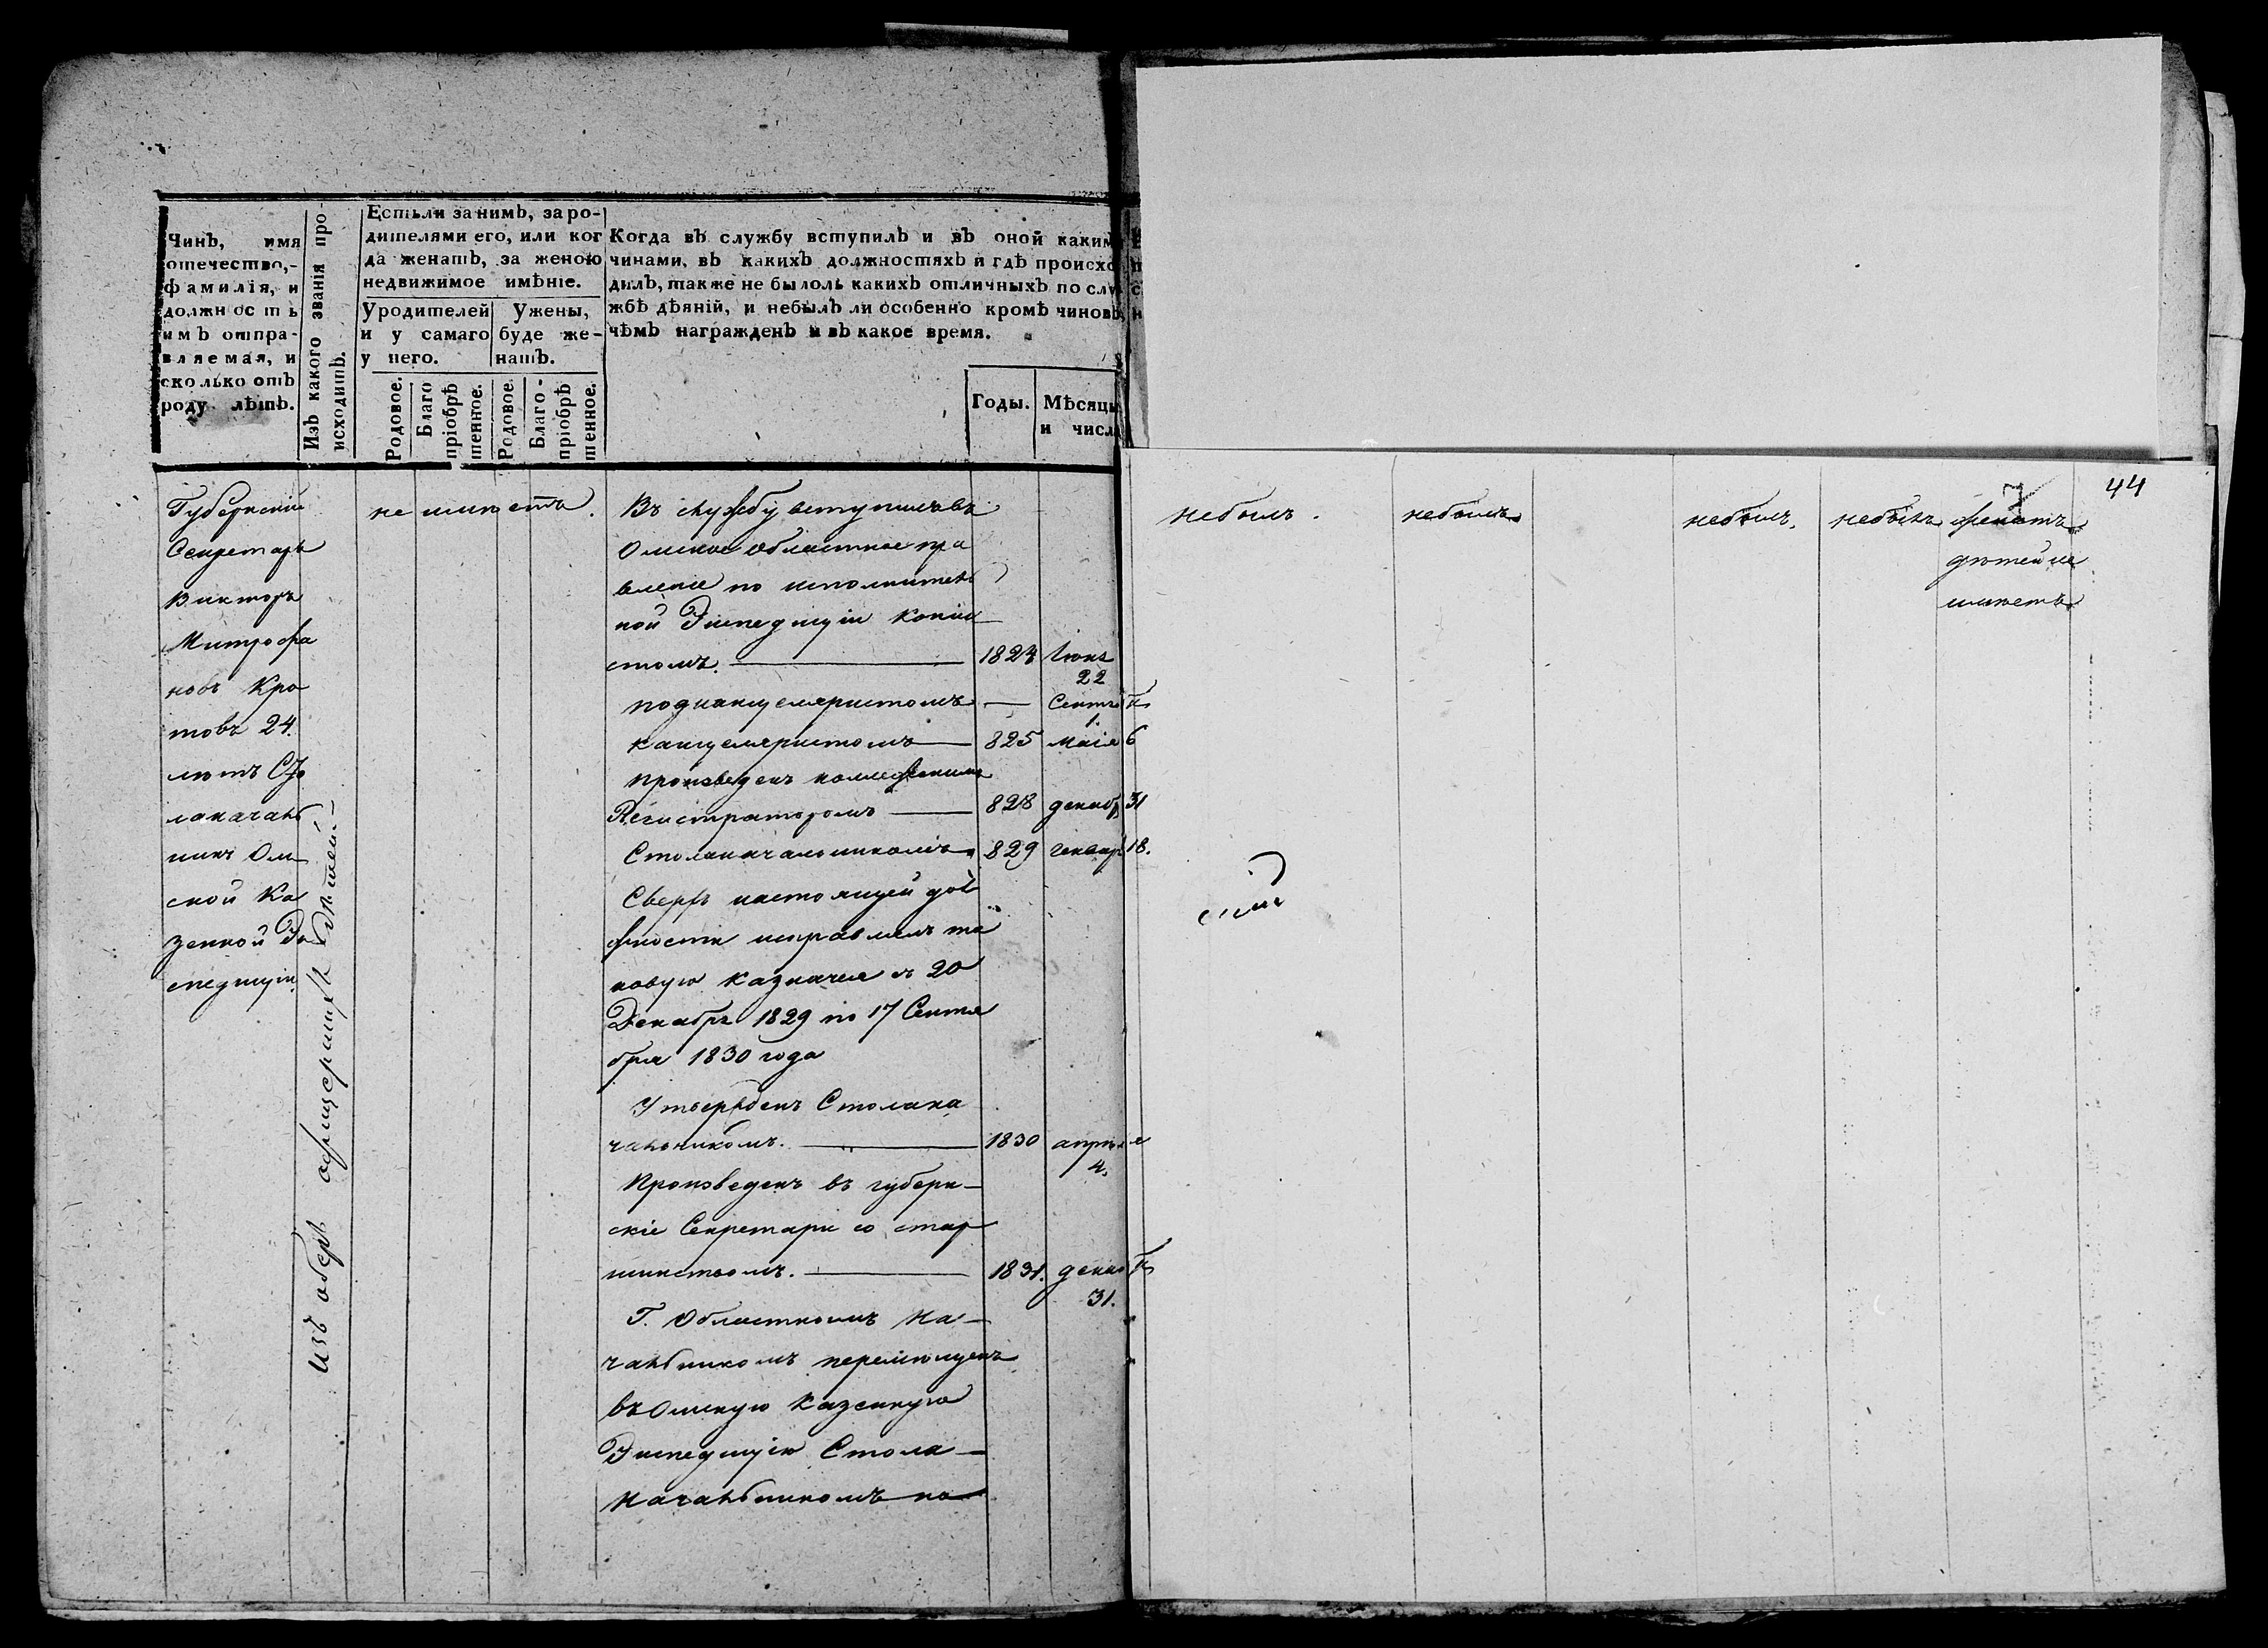 Чинъ, имя
отечество,-
фамилія, и
должность
имъ отпра-
вляемая, и
сколько отъ
роду лѣтъ.
Изъ какого званія про-
исходитъ.
Естьли за нимъ, за ро-
дителями его, или ког
да женатъ, за женою
недвижимое имѣніе.
У родителей
и у самаго
у него.
У жены,
буде же-
натъ.
Родовое.
Благо
пріобрѣ
тенное.
Родовое.
Благо-
пріобрѣ
тенное.
Когда въ службу вступилъ и въ оной каким
чинами, въ какихъ должностяхъ и гдѣ происхо
дилъ, также не былоль какихъ отличныхъ по слу
жбѣ дѣяній, и небылъ ли особенно кромѣ чиновъ,
чѣмъ награжденъ и въ какое время.
Годы.
Мѣсяцы
и числа
Губернскій
Секретарь
Викторъ
Митрофа
новъ Кро
товъ 24.
лѣтъ Сто
лоначаль
никъ Ом
ской Ка
зенной Эк
спедиціи
Изъ оберъ офицерскихъ дѣтей.
не имѣетъ.
Въ службу вступилъ въ
Омское Областное пра
вленіе по исполнитель
ной Экспедиціи Копіи
стомъ. 1823 Іюня
22
подканцеляристомъ — Сентяб
1.
канцеляристомъ 825 маія 6
произведенъ коллежскимъ
Регистраторомъ 828 декабр 31
Столоначальникомъ 829 генвар 18.
Сверхъ настоящей дол
жности исправлялъ та
ковую казначея съ 20
Декабря 1829 по 17 Сентя
бря 1830 года
Утвержденъ Столона
чальникомъ. 1830 апрѣля
4.
Произведенъ въ губерн-
скіе Секретари со стар
шинствомъ. 1831. декаб
31.
Г. Областнымъ На-
чальникомъ перемѣщенъ
въ Омскую Казенную
Экспедицію Столо-
начальникомъ
44
небылъ.
небылъ
небылъ.
небылъ
женатъ
дѣтей не
имѣетъ